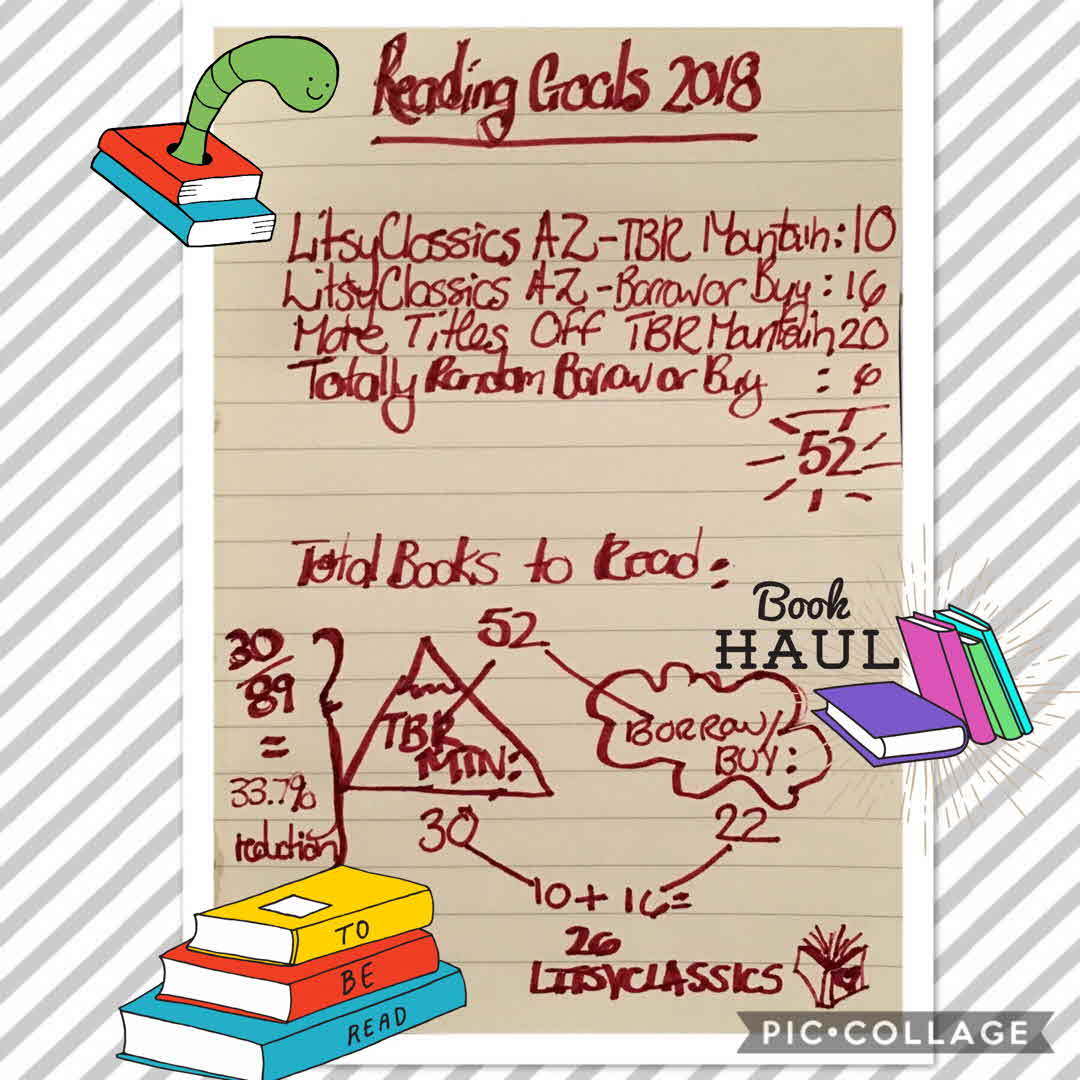 Reading Goals 2018
LitsyClassics AZ-TBR Mountain: 10
LitsyClassics AZ-Borrow or Buy: 16
More Titles Off TBR Mountain 20
Totally Random Borrow or Buy : 6
52
Total Books to Read:
Book
HAUL
52
30
89
=
33.7%
reduction
TBR
MTN:
BORROW/
BUY:
30
22
10 + 16 =
26
LITSYCLASSICS
TO
BE
READ
PIC•COLLAGE